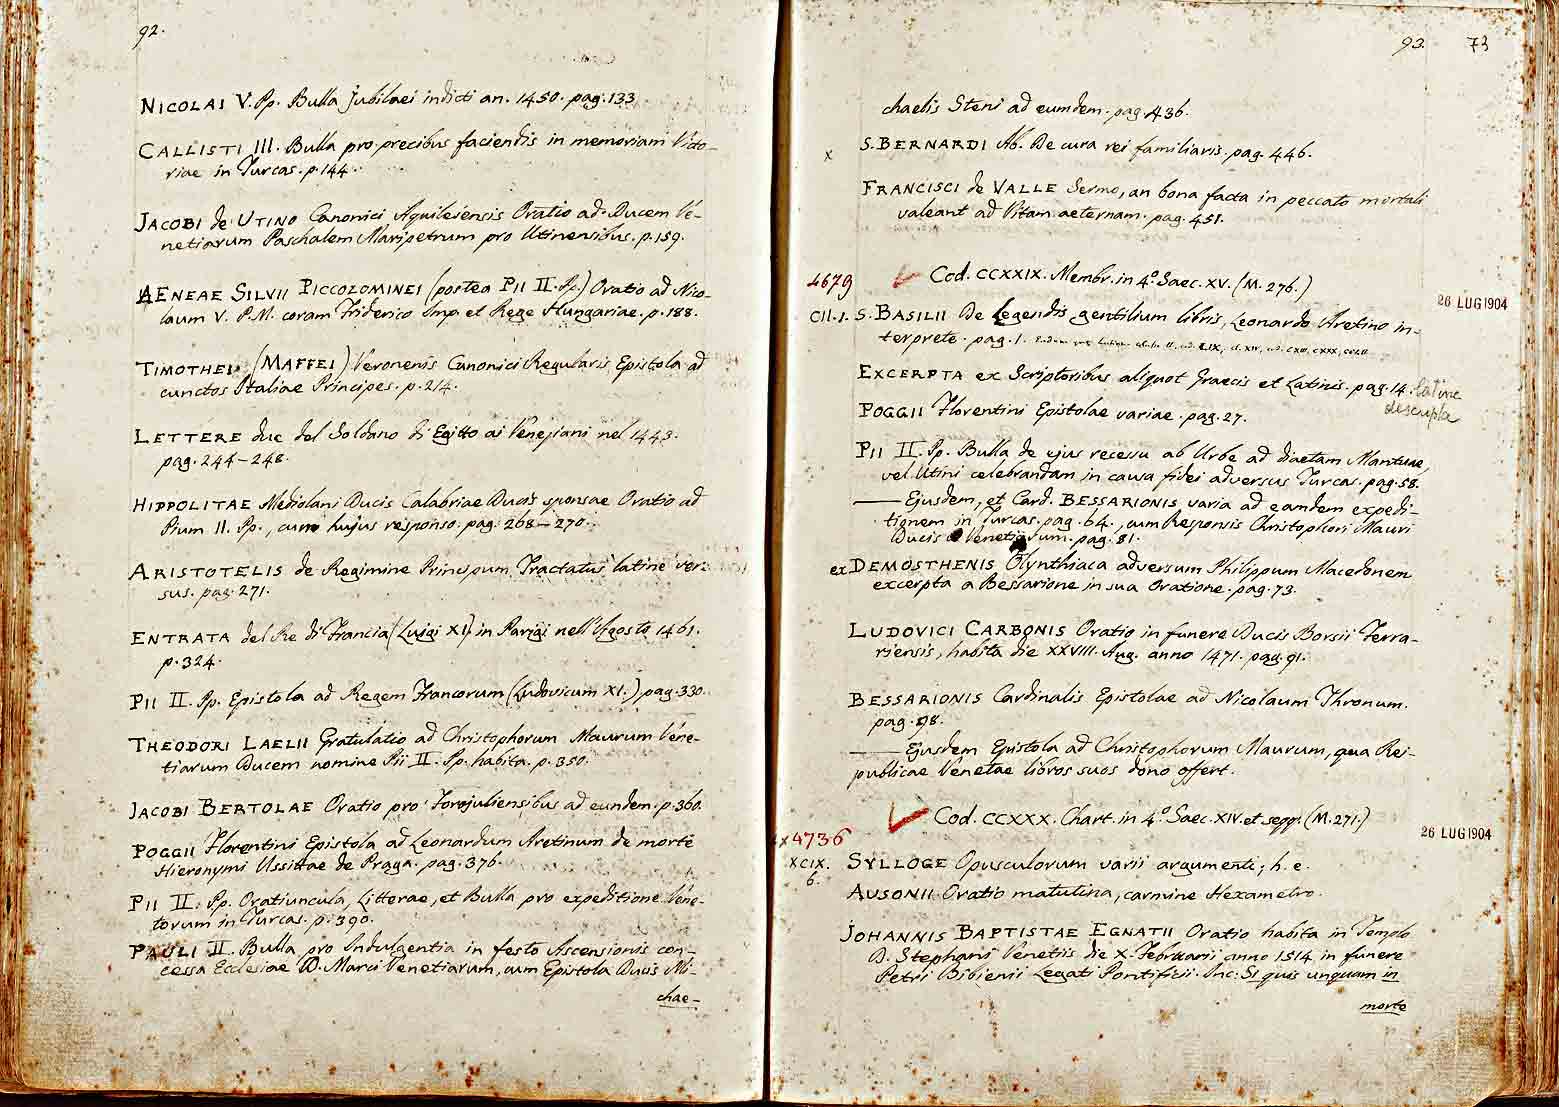 92.
NICOLAI V. Pp. Bulla Jubilaei indicti an. 1450. pag. 133
CALLISTI III. Bulla pro precibus faciendis in memoriam Victo-
riae in Turcas. p. 144.
JACOBI de UTINO Canonici Aquilejensis Oratio ad Ducem Ve-
netiarum Paschalem Maripetrum pro Utinensibus. p. 159.
AENEAE SILVII PICCOLOMINEI (postea PII II. Pp.) Oratio ad Nico-
laum V. P. M. coram Friderico Imp. et Rege Hungariae. p. 188.
TIMOTHEI (MAFFEI) Veronensis Canonici Regularis Epistola ad
cunctos Italiae Principes. p. 214.
LETTERE due del Soldano di Egitto ai Veneziani nel 1443.
pag. 244-248.
HIPPOLITAE Mediolani Ducis Calabriae Ducis sponsae Oratio ad
Pium II. Pp., cum hujus responso. pag. 268-270.
ARISTOTELIS de Regimine Principum Tractatus latine ver-
sus. pag. 271.
ENTRATA del Re di Francia (Luigi XI) in Parigi nell'Agosto 1461.
p. 324.
PII II. Pp. Epistola ad Regem Francorum (Ludovicum XI.) pag. 330.
THEODORI LAELII Gratulatio ad Christophorum Maurum Vene-
tiarum Ducem nomine Pii II. Pp. habita. p. 350.
JACOBI BERTOLAE Oratio pro Forojuliensibus ad eundem. p. 360.
POGGII Florentini Epistola ad Leonardum Aretinum de morte
Hieronymi Ussitae de Praga. pag. 376.
PII II. Pp. Oratiuncula, Litterae, et Bulla pro expeditione Vene-
torum in Turcas. p. 390.
PAULI II. Bulla pro Indulgentia in festo Ascensionis con-
cessa Ecclesiae D. Marci Venetiarum, cum Epistola Ducis Mi-
chae-
93. 73
chaelis Steni ad eumdem. pag. 436.
x S. BERNARDI Ab. De cura rei familiaris. pag. 446.
FRANCISCI de VALLE Sermo, an bona facta in peccato mortali
valeant ad Vitam aeternam. pag. 451.
4679 Cod. CCXXIX. Membr. in 4.º Saec. XV. (M. 276.)
26 LUG 1904
CII. 1. S. BASILII De Legendis gentilium libris, Leonardo Aretino in-
terprete. pag. 1.
EXCERPTA ex Scriptoribus aliquot Graecis et Latinis. pag. 14. latine
descripta
POGGII Florentini Epistolae variae. pag. 27.
PII II. Pp. Bulla de ejus recessu ab Urbe ad diaetam Mantuae,
vel Utini celebrandam in causa fidei adversus Turcas. pag. 58.
—— Ejusdem, et Card. BESSARIONIS varia ad eamdem expedi-
tionem in Turcas. pag. 64., cum Responsis Christophori Mauri
Ducis Venetiarum. pag. 81.
ex DEMOSTHENIS Olynthiaca adversum Philippum Macedonem
excerpta a Bessarione in sua Oratione. pag. 73.
LUDOVICI CARBONIS Oratio in funere Ducis Borsii Ferra-
riensis, habita die XXVIII. Aug. anno 1471. pag. 91.
BESSARIONIS Cardinalis Epistolae ad Nicolaum Thronum.
pag. 98.
—— Ejusdem Epistola ad Christophorum Maurum, qua Rei-
publicae Venetae libros suos dono offert.
Cod. CCXXX. Chart. in 4.º Saec. XIV. et seqq. (M. 271.)
x 4736
26 LUG 1904
XCIX. 6. SYLLOGE Opusculorum varii argumenti; h. e.
AUSONII Oratio matutina, carmine Hexametro.
JOHANNIS BAPTISTAE EGNATII Oratio habita in Templo
D. Stephani Venetiis die X. Februarii anno 1514 in funere
Petri Bibienii Legati Pontificii. Inc: Si quis unquam in
morte